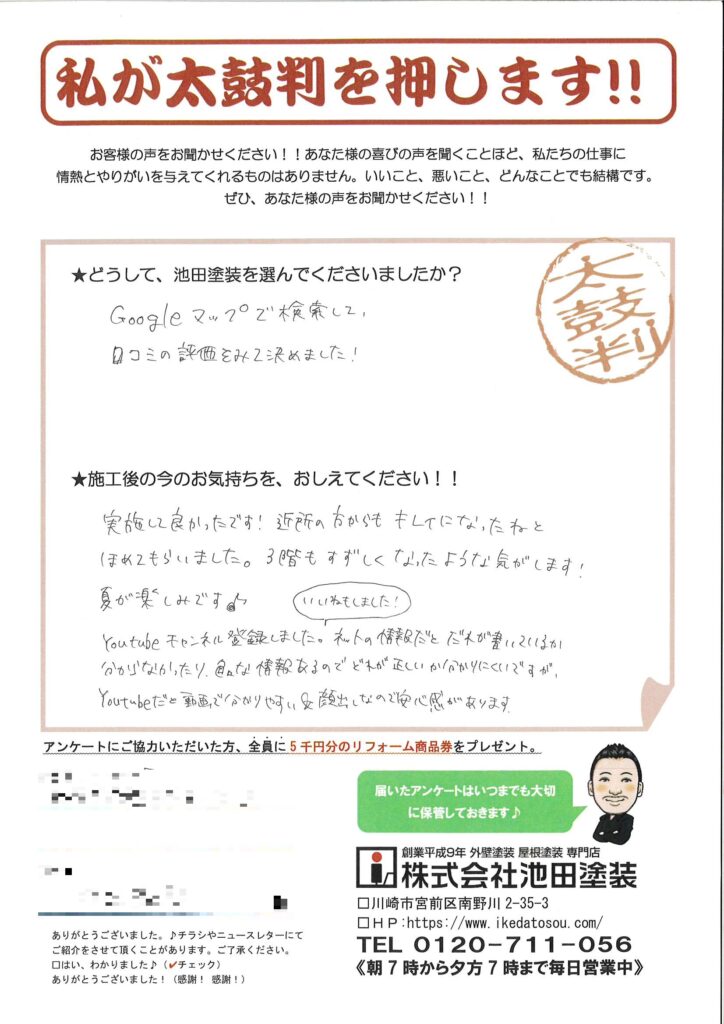 私が太鼓判を押します!!
お客様の声をお聞かせください！！あなた様の喜びの声を聞くことほど、私たちの仕事に
情熱とやりがいを与えてくれるものはありません。いいこと、悪いこと、どんなことでも結構です。
ぜひ、あなた様の声をお聞かせください！！
太鼓判
★どうして、池田塗装を選んでくださいましたか？
Googleマップで検索して、
口コミの評価をみて決めました！
★施工後の今のお気持ちを、おしえてください！！
実施して良かったです！近所の方からもキレイになったねと
ほめてもらいました。3階もすずしくなったような気がします！
夏が楽しみです♪
いいねもしました！
Youtubeチャンネル登録しました。ネットの情報だとだれが書いているか
分からなかったり、色々な情報あるのでどれが正しいか分かりにくいですが、
Youtubeだと動画で分かりやすい&顔出しなので安心感があります。
アンケートにご協力いただいた方、全員に5千円分のリフォーム商品券をプレゼント。
届いたアンケートはいつまでも大切
に保管しておきます♪
創業平成9年 外壁塗装 屋根塗装 専門店
株式会社池田塗装
□川崎市宮前区南野川2-35-3
□ＨＰ:https://www.ikedatosou.com/
TEL 0120-711-056
《朝7時から夕方7時まで毎日営業中》
ありがとうございました。♪チラシやニュースレターにて
ご紹介をさせて頂くことがあります。ご了承ください。
□はい、わかりました♪（✓チェック）
ありがとうございました！（感謝！感謝！）